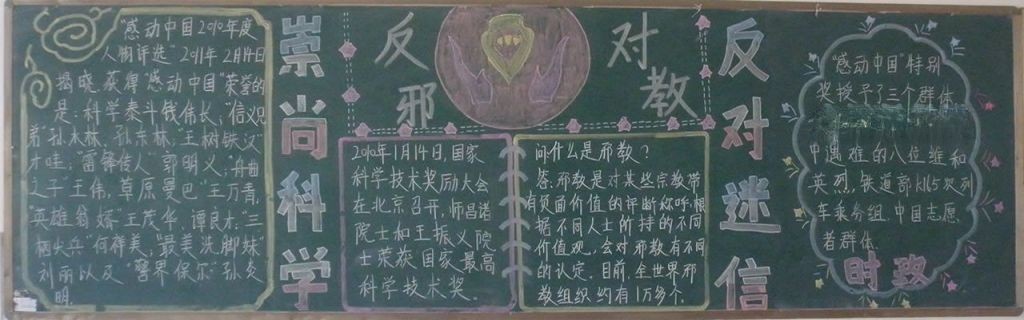 "感动中国2010年度
人物评选"2011年2月14日
揭晓获得"感动中国"荣誉的
是:科学泰斗钱伟长,"信义兄
弟"孙水林、孙东林,"王树铁汉"
才哇,"雷锋传人"郭明义,"舟曲
之子王伟,草原曼巴"王万青,
"英雄翁婿"王茂华、谭良才,"三
栖尖兵"何祥美,"最美洗脚妹"
刘丽以及"警界保尔"孙炎
明。
崇尚科学
反对
邪教
2010年1月14日,国家
科学技术奖励大会
在北京召开,师昌绪
院士和王振义院
士荣获国家最高
科学技术奖。
问什么是邪教?
答:邪教是对某些宗教带
有负面价值的评断称呼,根
据不同人士所持的不同
价值观,会对邪教有不同
的认定。目前,全世界邪
教组织约有1万多个.
反对迷信
"感动中国"特别
奖授予了三个群体
中遇难的八位维和
英烈,铁道部K165次列
车乘务组,中国志愿
者群体.
时政